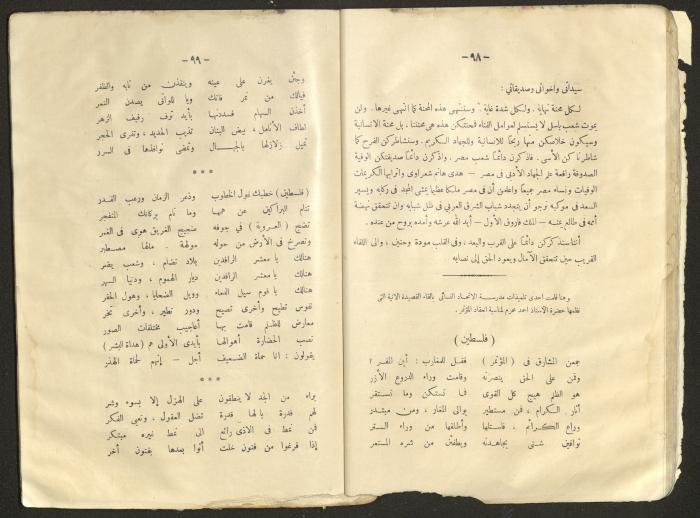 - ٩٨ -
سيداتى واخواتى وصديقاتى :
لكل محنة نهاية . ولكل شدة غاية . وستنتهى هذه المحنة كما انتهى غيرها . ولن
يموت شعب باسل لا يستسلم لعوامل الفناء فمحنتكن هذه هى محنتنا ، بل محنة الانسانية
وسيكون خلاصكن منها ربحًا للانسانية وللجهاد الكريم . وسنشاطركن الفرح كما
شاطرناكن الأسى . فاذكرن دائمًا شعب مصر . واذكرن دائمًا صديقتكن الوفية
الصدوقة رافعة علم الجهاد الأدبى فى مصر – هدى هانم شعراوى وأترابها الكريمات
الوفيات ونساء مصر جميعًا واعلمن أن فى مصر ملكا عظيما يمشى المجد فى ركابه ويسير
السعد فى موكبه نرجو أن يتجدد شباب الشرق العربى فى ظل شبابه وان تتحقق نهضة
أممه فى طالع يمنه – الملك فاروق الأول – أيد الله عرشه وأمده بروح من عنده .
أنناسنذكركن دائمًا على القرب والبعد ، وفى القلب مودة وحنين ، والى اللقاء
القريب حين تتحقق الآمال ويعود الحق إلى نصابه
وهنا قامت احدى تلميذات مدرسة الاتحاد النسائى بالقاء القصيدة الاتية التى
نظمها حضرة الأستاذ احمد محرم لمناسبة انعقاد المؤتمر .
( فلسطين )
جمعن المشارق فى ( المؤتمر ) فقل للمغارب : أين المفر ؟
وقمن على الحق ينصرنه وقامت وراء الدروع الأزر
هو الظلم هيج كل القوى فما تستكن وما تستقر
أثار الكرام ، فمن مستطير يوالى المغار ، ومن مبتدر
وراع الكرائم ، فاستلها وأطلقها من وراء الستر
نوافين شتى يجاهدنه ويطفئن من شره المستعر
- ٩٩ -
وجئن يغرن على عينه وينفذن من نابه والظفر
فيالك من نمر فاتك ويا للواتى يصدن النمر
أخذن السهام فسددنها بأيد ترف رفيف الزهر
لطاف الأنامل ، بيض البنان تذيب الحديد ، وتفرى الحجر
تميل زلازلها بالجبال وتمضى نوافذها فى السرر
***
( فلسطين ) خطبك غول الخطوب وذعر الزمان ورعب القدر
تنام البراكين عن همها وما نام بركانك المنفجر
تضج ( العروبة ) فى جوفه ضجيج الغريق هوى فى الغمر
وتصرخ فى الأرض من حوله مولهة . مالها مصطبر
هنالك يا معشر الراقدين بلاد تضام ، وشعب يضر
هنالك يا معشر الرافدين ديار الهموم ، ودنيا السهر
هنالك يا قوم سيل الدماء وويل الضحايا ، وهول الحفر
نفوس تطيح وأخرى تصيح ودور تطير ، وأخرى تخر
معارض للظلم قامت بها أعاجيب مختلفات الصور
نصب الحضارة أهوالها بأيدى الأولى هم (هداة البشر)
يقولون : انا حماة الضعيف أجل – إنهم لحماة الهذر
***
براء من الجد لا ينطقون على الهزل إلا بسوء وشر
لهم قدرة يالها قدرة تضل العقول ، وتعيى الفكر
فمن نمط فى الأذى رائع الى نمط غيره مبتكر
إذا فرغوا من فنون خلت أتوا بعدها بفنون أخر